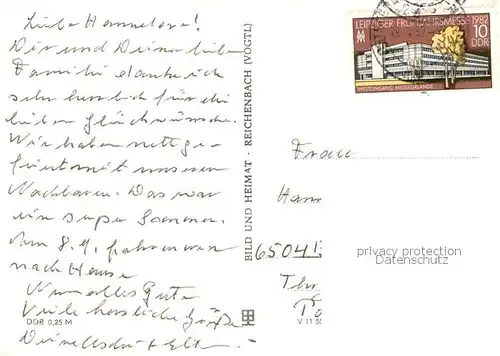 Liebe Hannelore!
Dir und Deiner lieben
Familie danke ich
sehr herzlich für die
lieben Glückwünsche.
Wir haben nett ge-
feiert mit unseren
Nachbarn. Das war
ein super Sommer.
Am 8.9. fahren wir
nach Hause
Nun alles Gute
Viele herzliche Grüße
Deine
DDR 0,25 M
BILD UND HEIMAT · REICHENBACH (VOGTL)
V 11 50
LEIPZIGER FRÜHJAHRSMESSE 1982
10
DDR
WESTEINGANG MESSEGELÄNDE
Frau
Hann
6504
privacy protection
Datenschutz